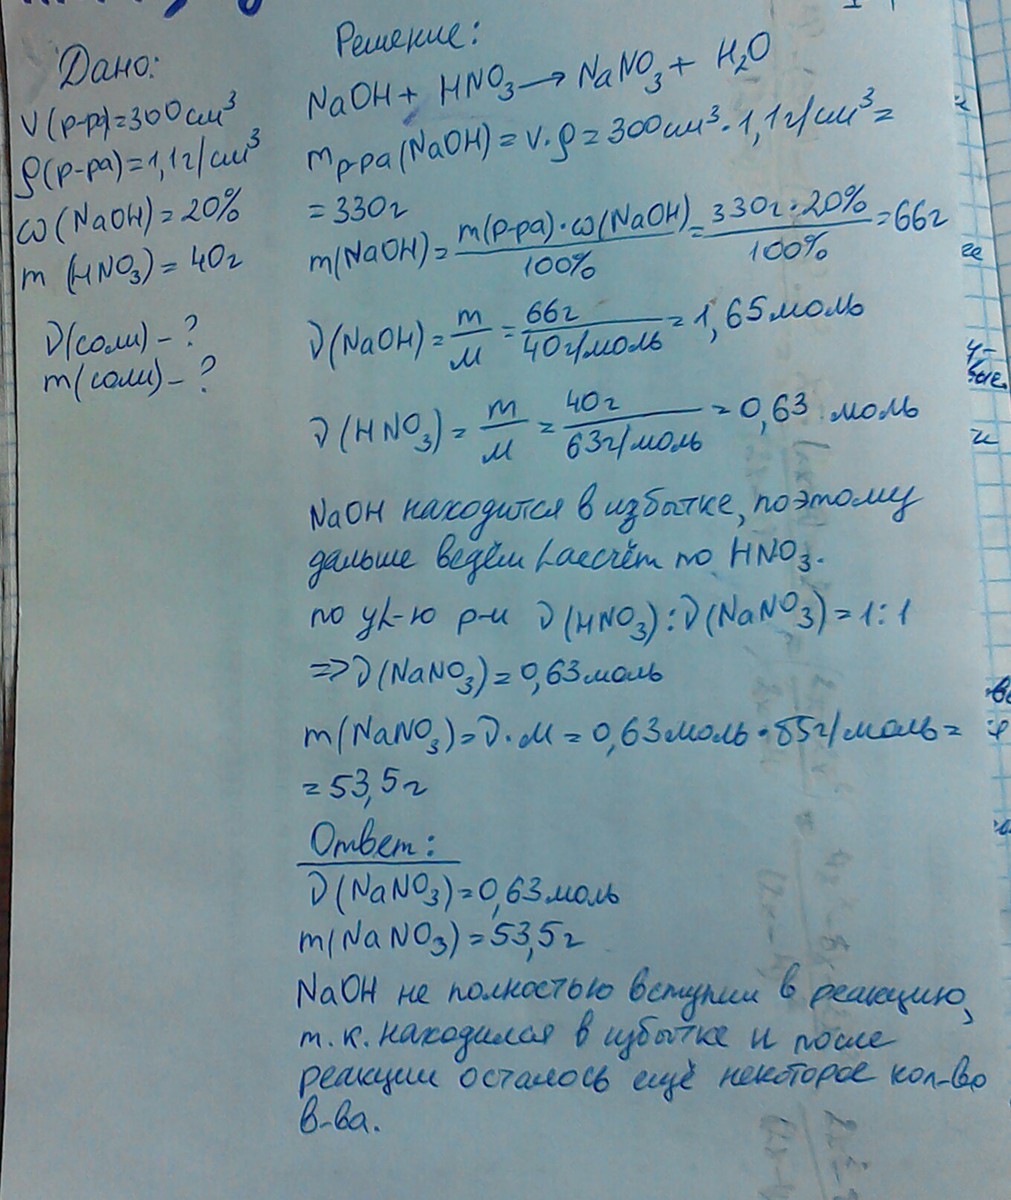 Дано:
V(р-р)=300см³
ρ(р-ра)=1,1г/см³
ω(NaOH)=20%
m (HNO₃)=40г
ν(соли)-?
m(соли)-?
Решение:
NaOH+ HNO₃→NaNO₃+ H₂O
mр-ра(NaOH)=V·ρ=300см³·1,1г/см³=
=330г
m(NaOH)=m(р-ра)·ω(NaOH)/100%=330г·20%/100%=66г
ν(NaOH)=m/M=66г/40г/моль=1,65моль
ν(HNO₃)=m/M=40г/63г/моль=0,63 моль
NaOH находится в избытке, поэтому
дальше ведём расчёт по HNO₃.
по ур-ю р-и ν(HNO₃):ν(NaNO₃)=1:1
=>ν(NaNO₃)=0,63моль
m(NaNO₃)=ν·M=0,63моль·85г/моль=
=53,5г
Ответ:
ν(NaNO₃)=0,63моль
m(NaNO₃)=53,5г
NaOH не полностью вступил в реакцию,
т.к. находился в избытке и после
реакции осталось ещё некоторое кол-во
в-ва.